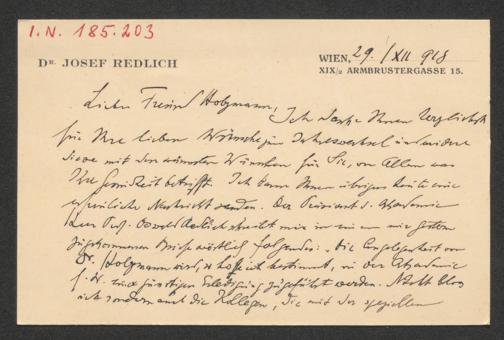 I.N. 185.203
DR. JOSEF REDLICH
WIEN, 29. /XII 918
XIX/2 ARMBRUSTERGASSE 15.
Lieber Freund Holzmann, Ich danke Ihnen herzlichst
für Ihre lieben Wünsche zum Jahreswechsel und erwidere
diese mit den wärmsten Wünschen für Sie, vor Allem was
Ihre Gesundheit betrifft. Ich kann Ihnen übrigens heute eine
erfreuliche Nachricht senden. Der Präsident d. Akademie
Herr Prof. Oswald Redlich schreibt mir in einem mir gestern
zugekommenen Brief wörtlich folgendes: "Die Angelegenheit von
Dr. Holzmann wird, so hoffe ich bestimmt, in der Akademie
günstigen Erledigung zugeführt werden. Nicht blos
ich sondern auch die Kollegen, die mit der speziellen